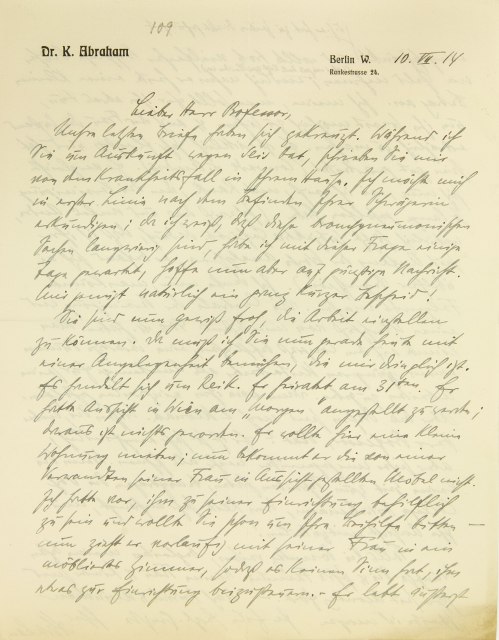 109
Dr. K. Abraham
Berlin W. 10. VII. 14
Rankestrasse 24.
Lieber Herr Professor,
Unsre letzten Briefe haben sich gekreuzt. Während ich
Sie um Auskunft wegen bat, schrieben Sie mir
von dem Krankheitsfall in Ihrem Hause. Ich möchte mich
in erster Linie nach dem Befinden Ihrer Schwägerin
erkundigen; da ich weiß, daß diese bronchopneumonischen
Sachen langwierig sind, habe ich mit dieser Frage einige
Tage gewartet, hoffe nun aber auf günstige Nachricht.
Mir genügt natürlich ein ganz kurzer Bescheid!
Sie sind nun gewiß froh, die Arbeit einstellen
zu können. Da muß ich Sie nun gerade heute mit
einer Angelegenheit bemühen, die mir dringlich ist.
Es handelt sich um Reik. Er heiratet am 31ten. Er
hatte Aussicht in Wien am „Morgen" angestellt zu werden;
daraus ist nichts geworden. Er wollte hier eine kleine
Wohnung mieten; nun bekommt er die von einer
Verwandten seiner Frau in Aussicht gestellten Möbel nicht.
Ich hatte vor, ihm zu seiner Einrichtung behilflich
zu sein und wollte Sie schon um Ihre Beihilfe bitten —
nun zieht er vorläufig mit seiner Frau in ein
möbliertes Zimmer, sodaß es keinen Sinn hat, ihm
etwas zur Einrichtung beizusteuern. – Er lebt äußerst